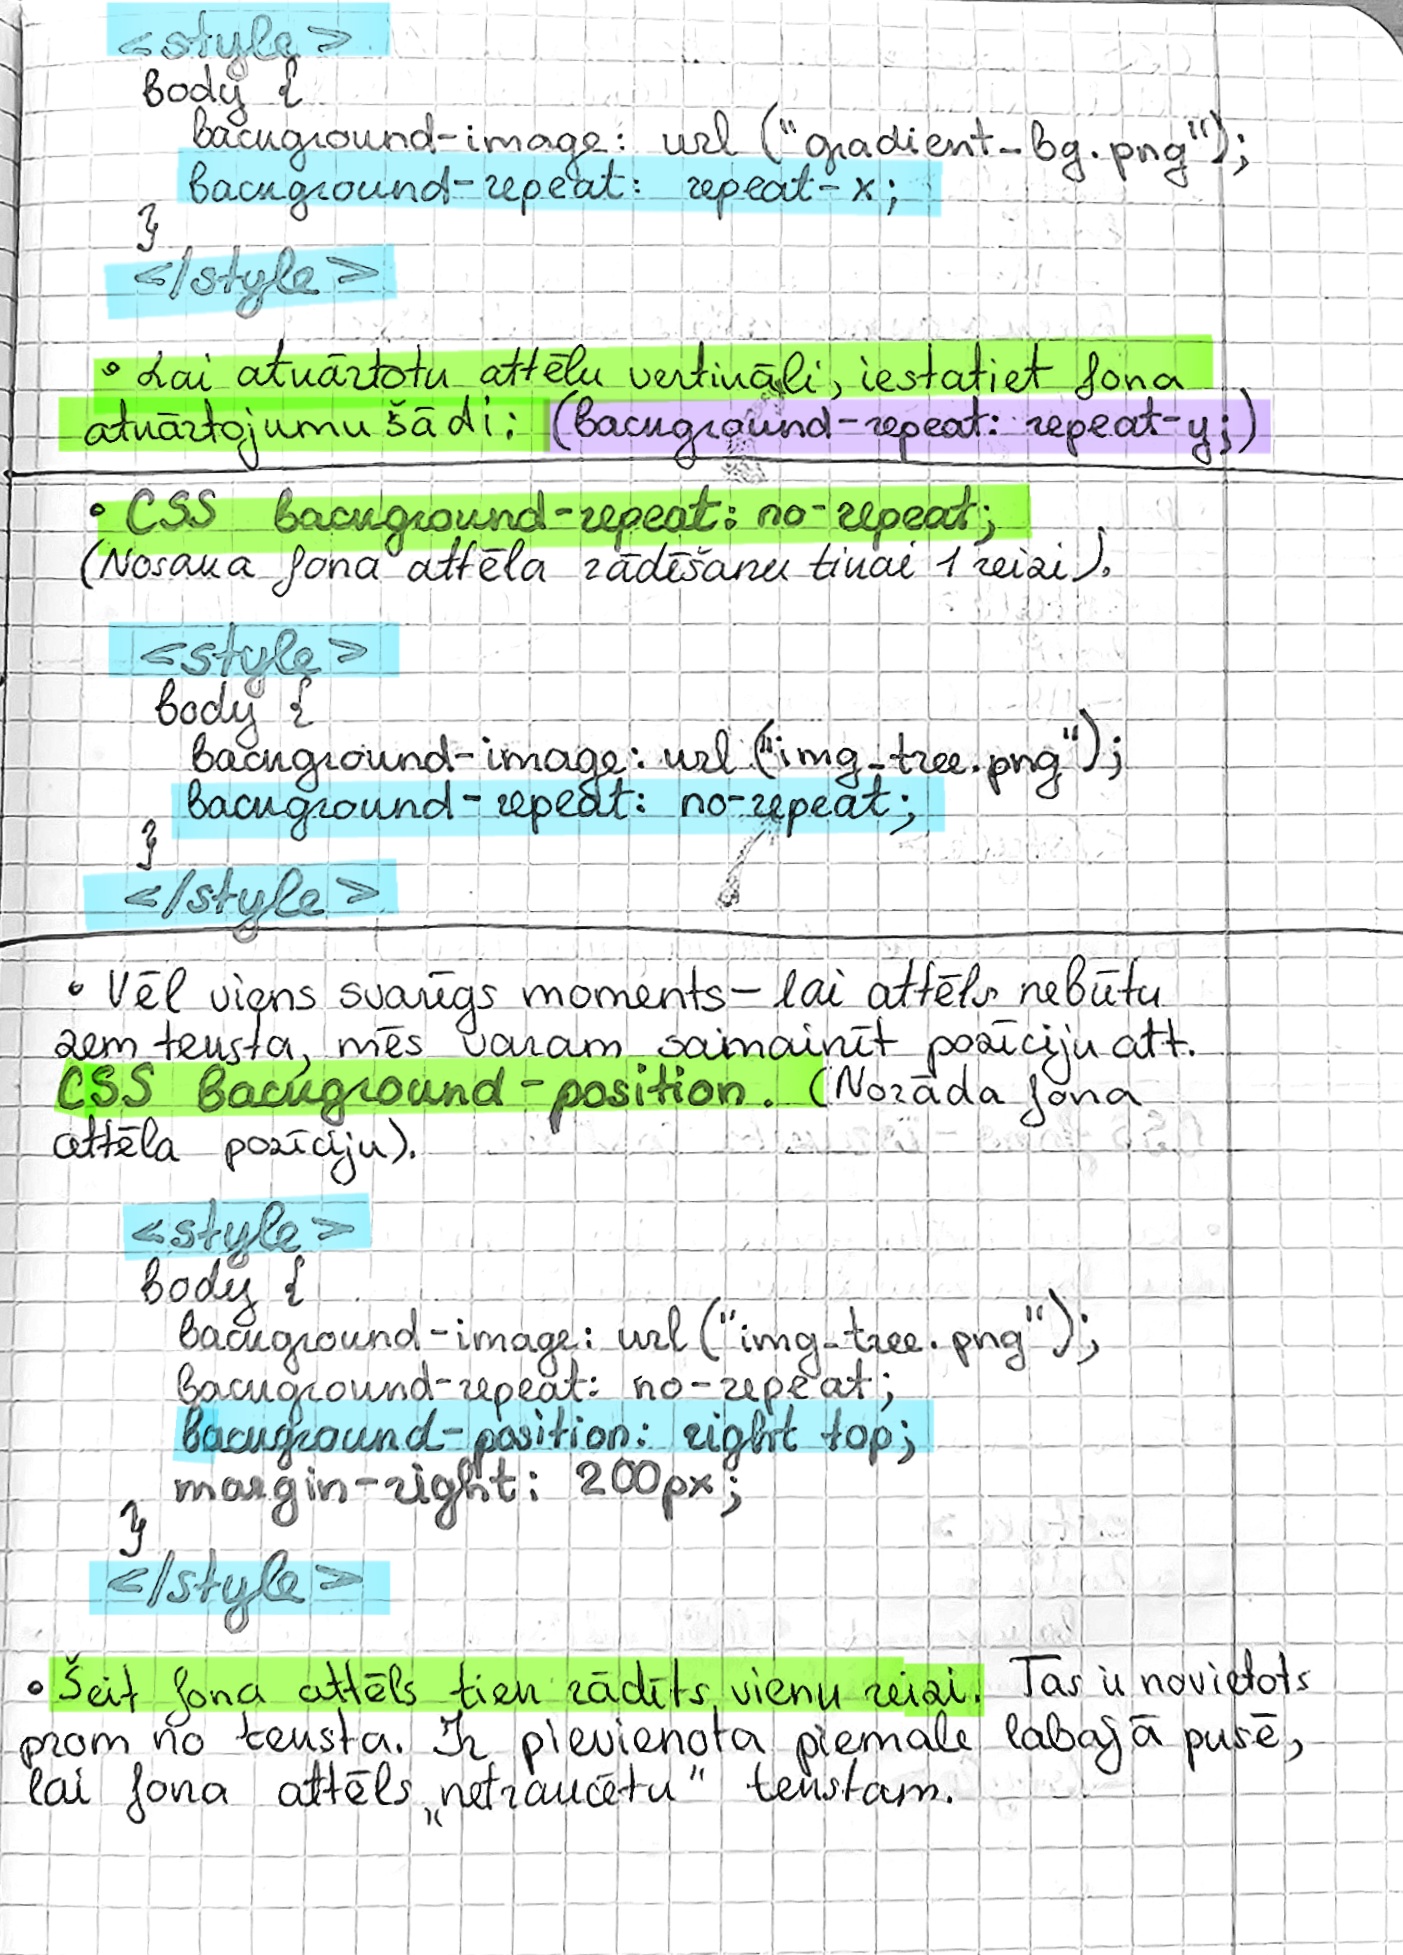 <style>
body {
background-image: url ("gradient-bg.png");
background-repeat: repeat-x;
}
</style>
• Lai atkārtotu attēlu vertikāli, iestatiet fona
atkārtojumu šādi: (background-repeat: repeat-y;)
• CSS background-repeat: no-repeat;
(Nosaka fona attēla rādīšanu tikai 1 reizi).
<style>
body {
background-image: url ("img_tree.png");
background-repeat: no-repeat;
}
</style>
• Vēl viens svarīgs moments – lai attēls nebūtu
zem teksta, mēs varam samainīt pozīciju att.
CSS Background-position. (Norāda fona
attēla pozīciju).
<style>
body {
background-image: url ("img-tree.png");
background-repeat: no-repeat;
background-position: right top;
margin-right: 200px;
}
</style>
• Šeit fona attēls tiek rādīts vienu reizi. Tas ir novietots
prom no teksta. Ir pievienota piemale labajā pusē,
lai fona attēls „netraucētu" tekstam.